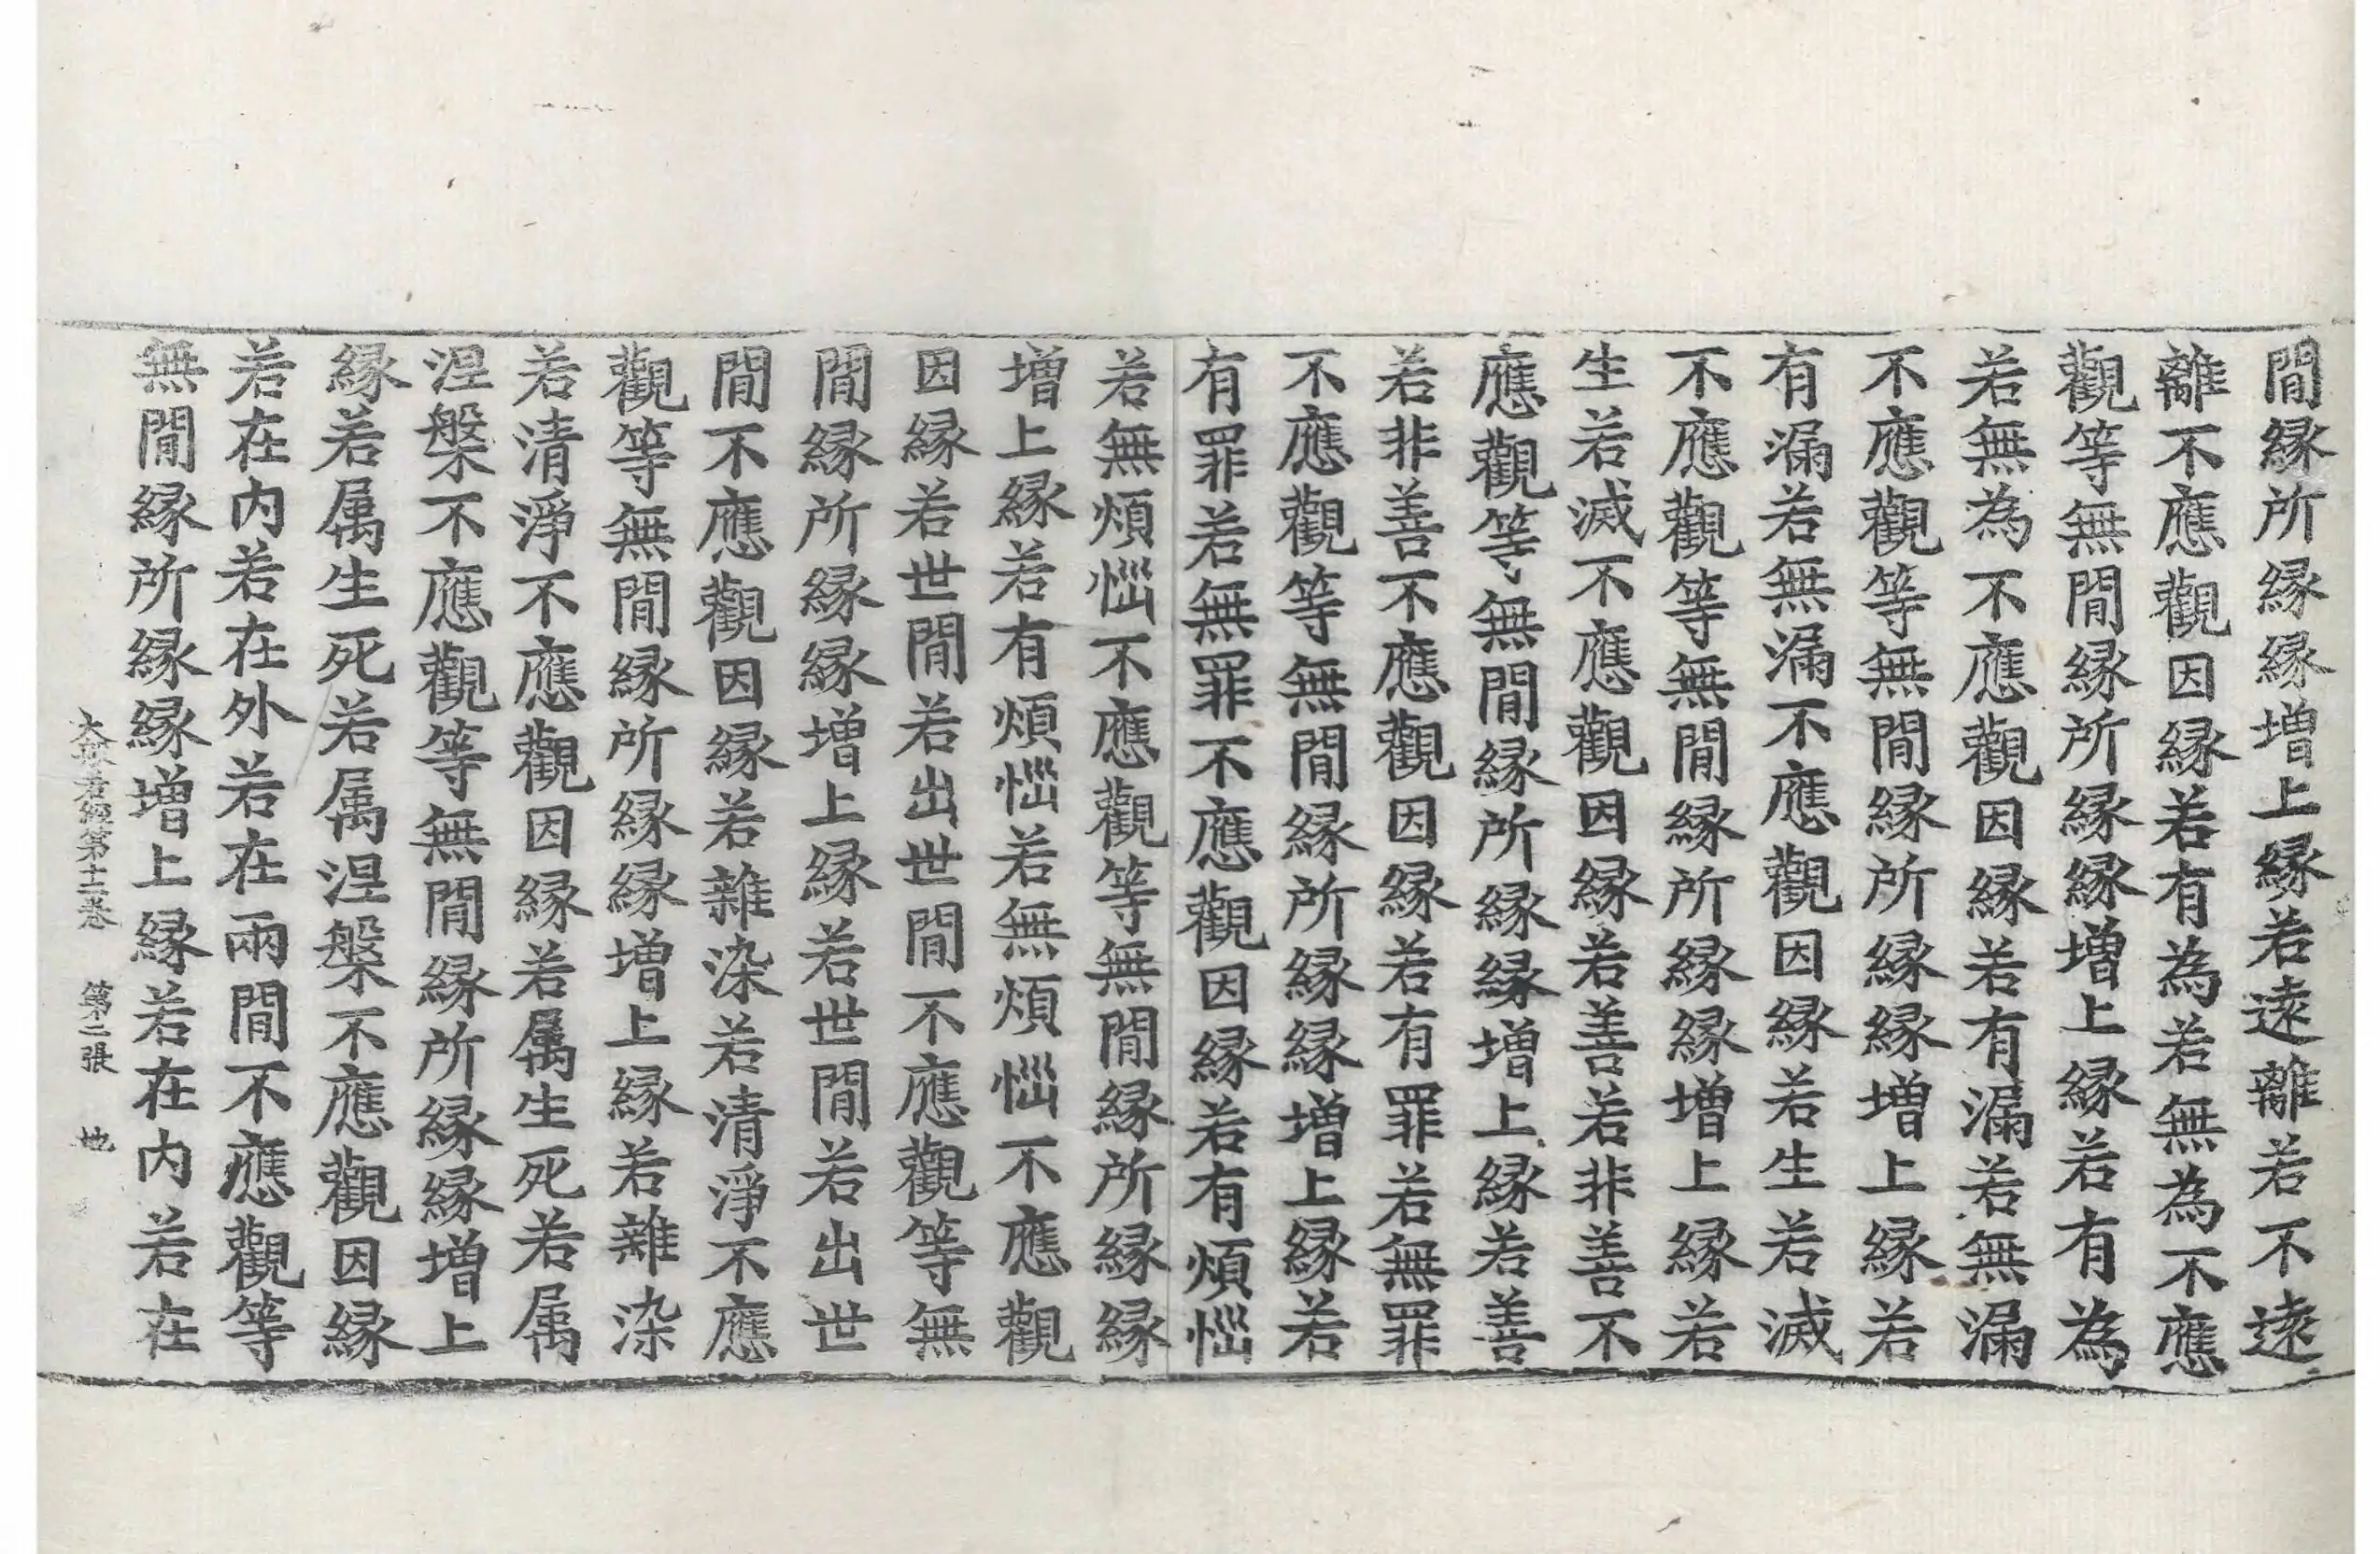 閒縁所縁縁增上縁若遠離若不遠
離不應觀因縁若有為若無為不應
觀等無閒縁所縁縁增上縁若有為
若無為不應觀因縁若有漏若無漏
不應觀等無閒縁所縁縁增上縁若
有漏若無漏不應觀因縁若生若滅
不應觀等無閒縁所縁縁增上縁若
生若滅不應觀因縁若善若非善不
應觀等無閒縁所縁縁增上縁若善
若非善不應觀因縁若有罪若無罪
不應觀等無閒縁所縁縁增上縁若
有罪若無罪不應觀因縁若有煩惱
若無煩惱不應觀等無閒縁所縁縁
增上縁若有煩惱若無煩惱不應觀
因縁若世閒若出世閒不應觀等無
閒縁所縁縁增上縁若世閒若出世
閒不應觀因縁若雜染若清淨不應
觀等無閒縁所縁縁增上縁若雜染
若清淨不應觀因縁若属生死若属
涅槃不應觀等無閒縁所縁縁增上
縁若属生死若属涅槃不應觀因縁
若在内若在外若在兩閒不應觀等
無閒縁所縁縁增上縁若在内若在
大般若經第十二卷 第二張 地